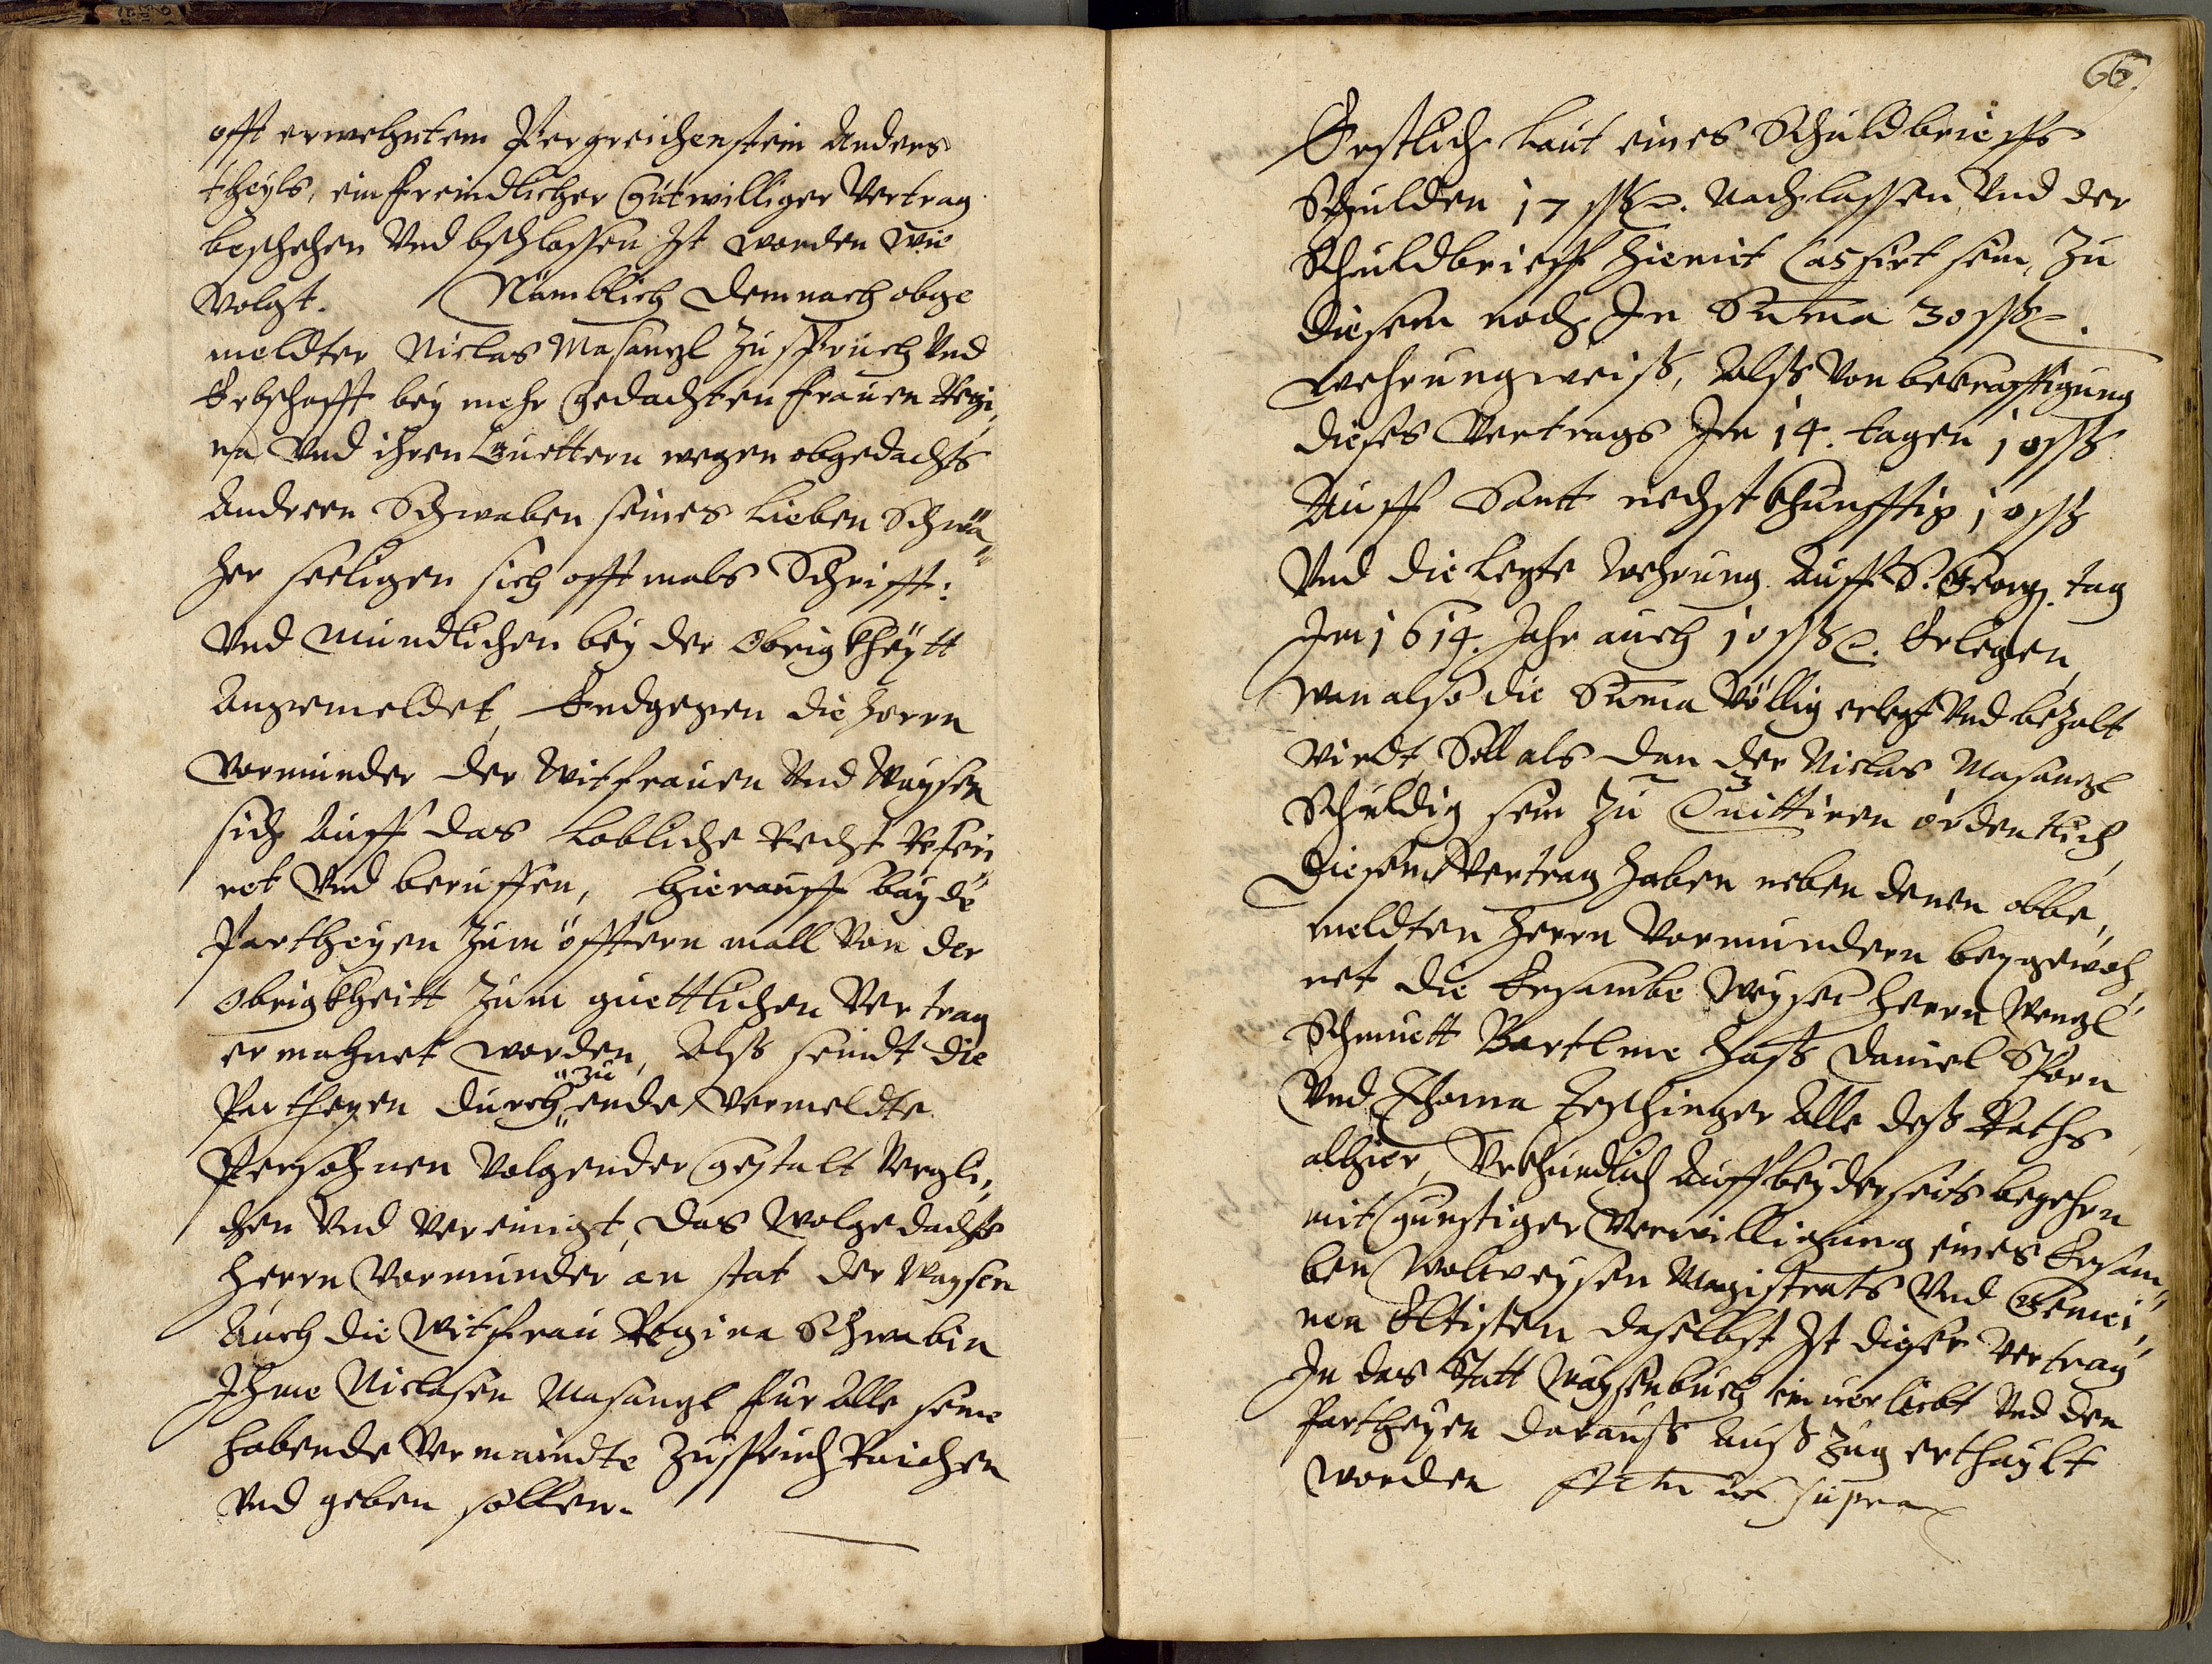 offt erwehntem Pergreichenstein Anders
theyls, ein freindlicher Gutwilliger Vertrag
beschehen Vnd bschlossen Ist worden wie
Volgt. Nämblich demnach obge
meldter Niclas Masanzl Zuspruch Vnd
Erbschafft bey mehr gedachten frauen Regi,,
na Vnd ihren Guettern wegen obgedachts
Andreen Schwaben seines Lieben Schwä,,
her seeligen sich offtmals Schrifft:
Vnd Mündlichen bey der Obrigkheytt
Angemeldet, Endgegen die herrn
Vormunder der Witfrauen Vnd Waysen
sich Auff das Lobliche Recht Referi,,
ret Vnd beruffen, hierauff bayde
Partheyen Zum öfftern mall Von der
Obrigkheitt Zum guettlichen Vertrag
ermahnet worden, Alß seindt die
Partheyen durch "zu" ende Vermeldte
Persohnen Volgender gestalt Vergli,,
chen Vnd Vereinigt, das Wolgedachte
Herrn Vormunder an stat der Waysen
Auch die Witfrau Regina Schwabin
Ihme Niclasen Masanzl für Alle seine
habende Vermaindte Zuspruch Raichen
Vnd geben sollen.
66.
Erstlich Laut eines Schuldbrieffs
Schulden 17 ßß. Nachlassen Vnd der
Schuldbrieff hiemit Cassirt sein, Zu
diesem noch In Suma 30 ßß.
Wehrungweiß, Alß Von bekrefftigung
dieses Vertrags In 14. tagen 10 ßß
Auff Santt nechstkhunfftig 10 ßß
Vnd die Lezte Wehrung Auff S. Georg. tag
Im 1614. Jahr auch 10 ßß. Erlegen,
wan also die Suma Völlig erlegt Vnd bezalt
Wirdt, Soll als dan der Niclas Masanzl
Schuldig sein Zu Quittiren ordentlich,
Diesem Vertrag haben neben denen obbe,,
meldten Herrn Vormundern beygewoh,,
net die Ersambe Weysen Herrn Wenzl
Schmitt Bartlme Haß Daniel Sporn
Vnd Thoma Zeschinger Alle deß Raths
alhier, Vrkhundlich Auff beyderseits begehrn
mit Gunstiger Verwilligung eines Ersam,,
ben Wolweysen Magistrats Vnd Gemei,,
nen Eltisten daselbst Ist dieser Vertrag
In das Statt Waysenbuch einuerleibt Vnd den
Partheyen darauß Außzug erthaylt
worden Actum ut supra